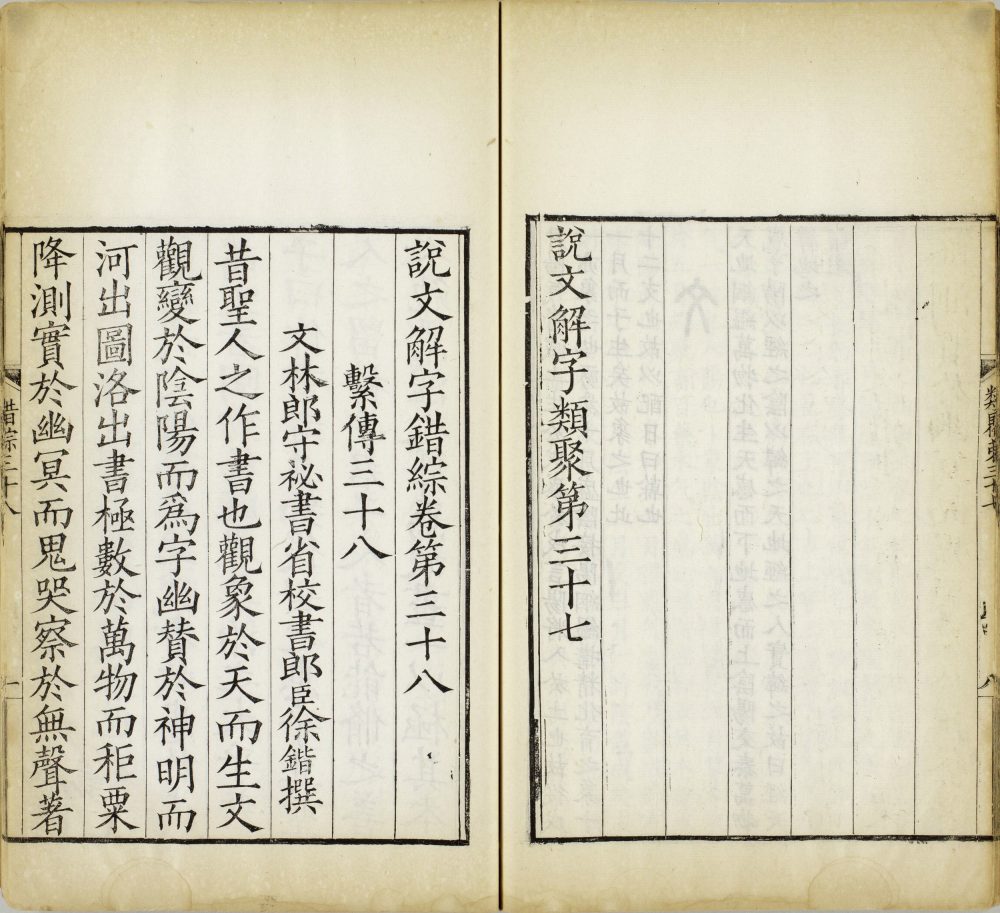 說文解字類聚第三十七
說文解字錯綜卷第三十八
繫傳三十八
文林郎守祕書省校書郎臣徐鍇撰
昔聖人之作書也觀象於天而生文
觀變於陰陽而爲字幽贊於神明而
河出圖洛出書極數於萬物而秬粟
降測實於幽冥而鬼哭察於無聲著